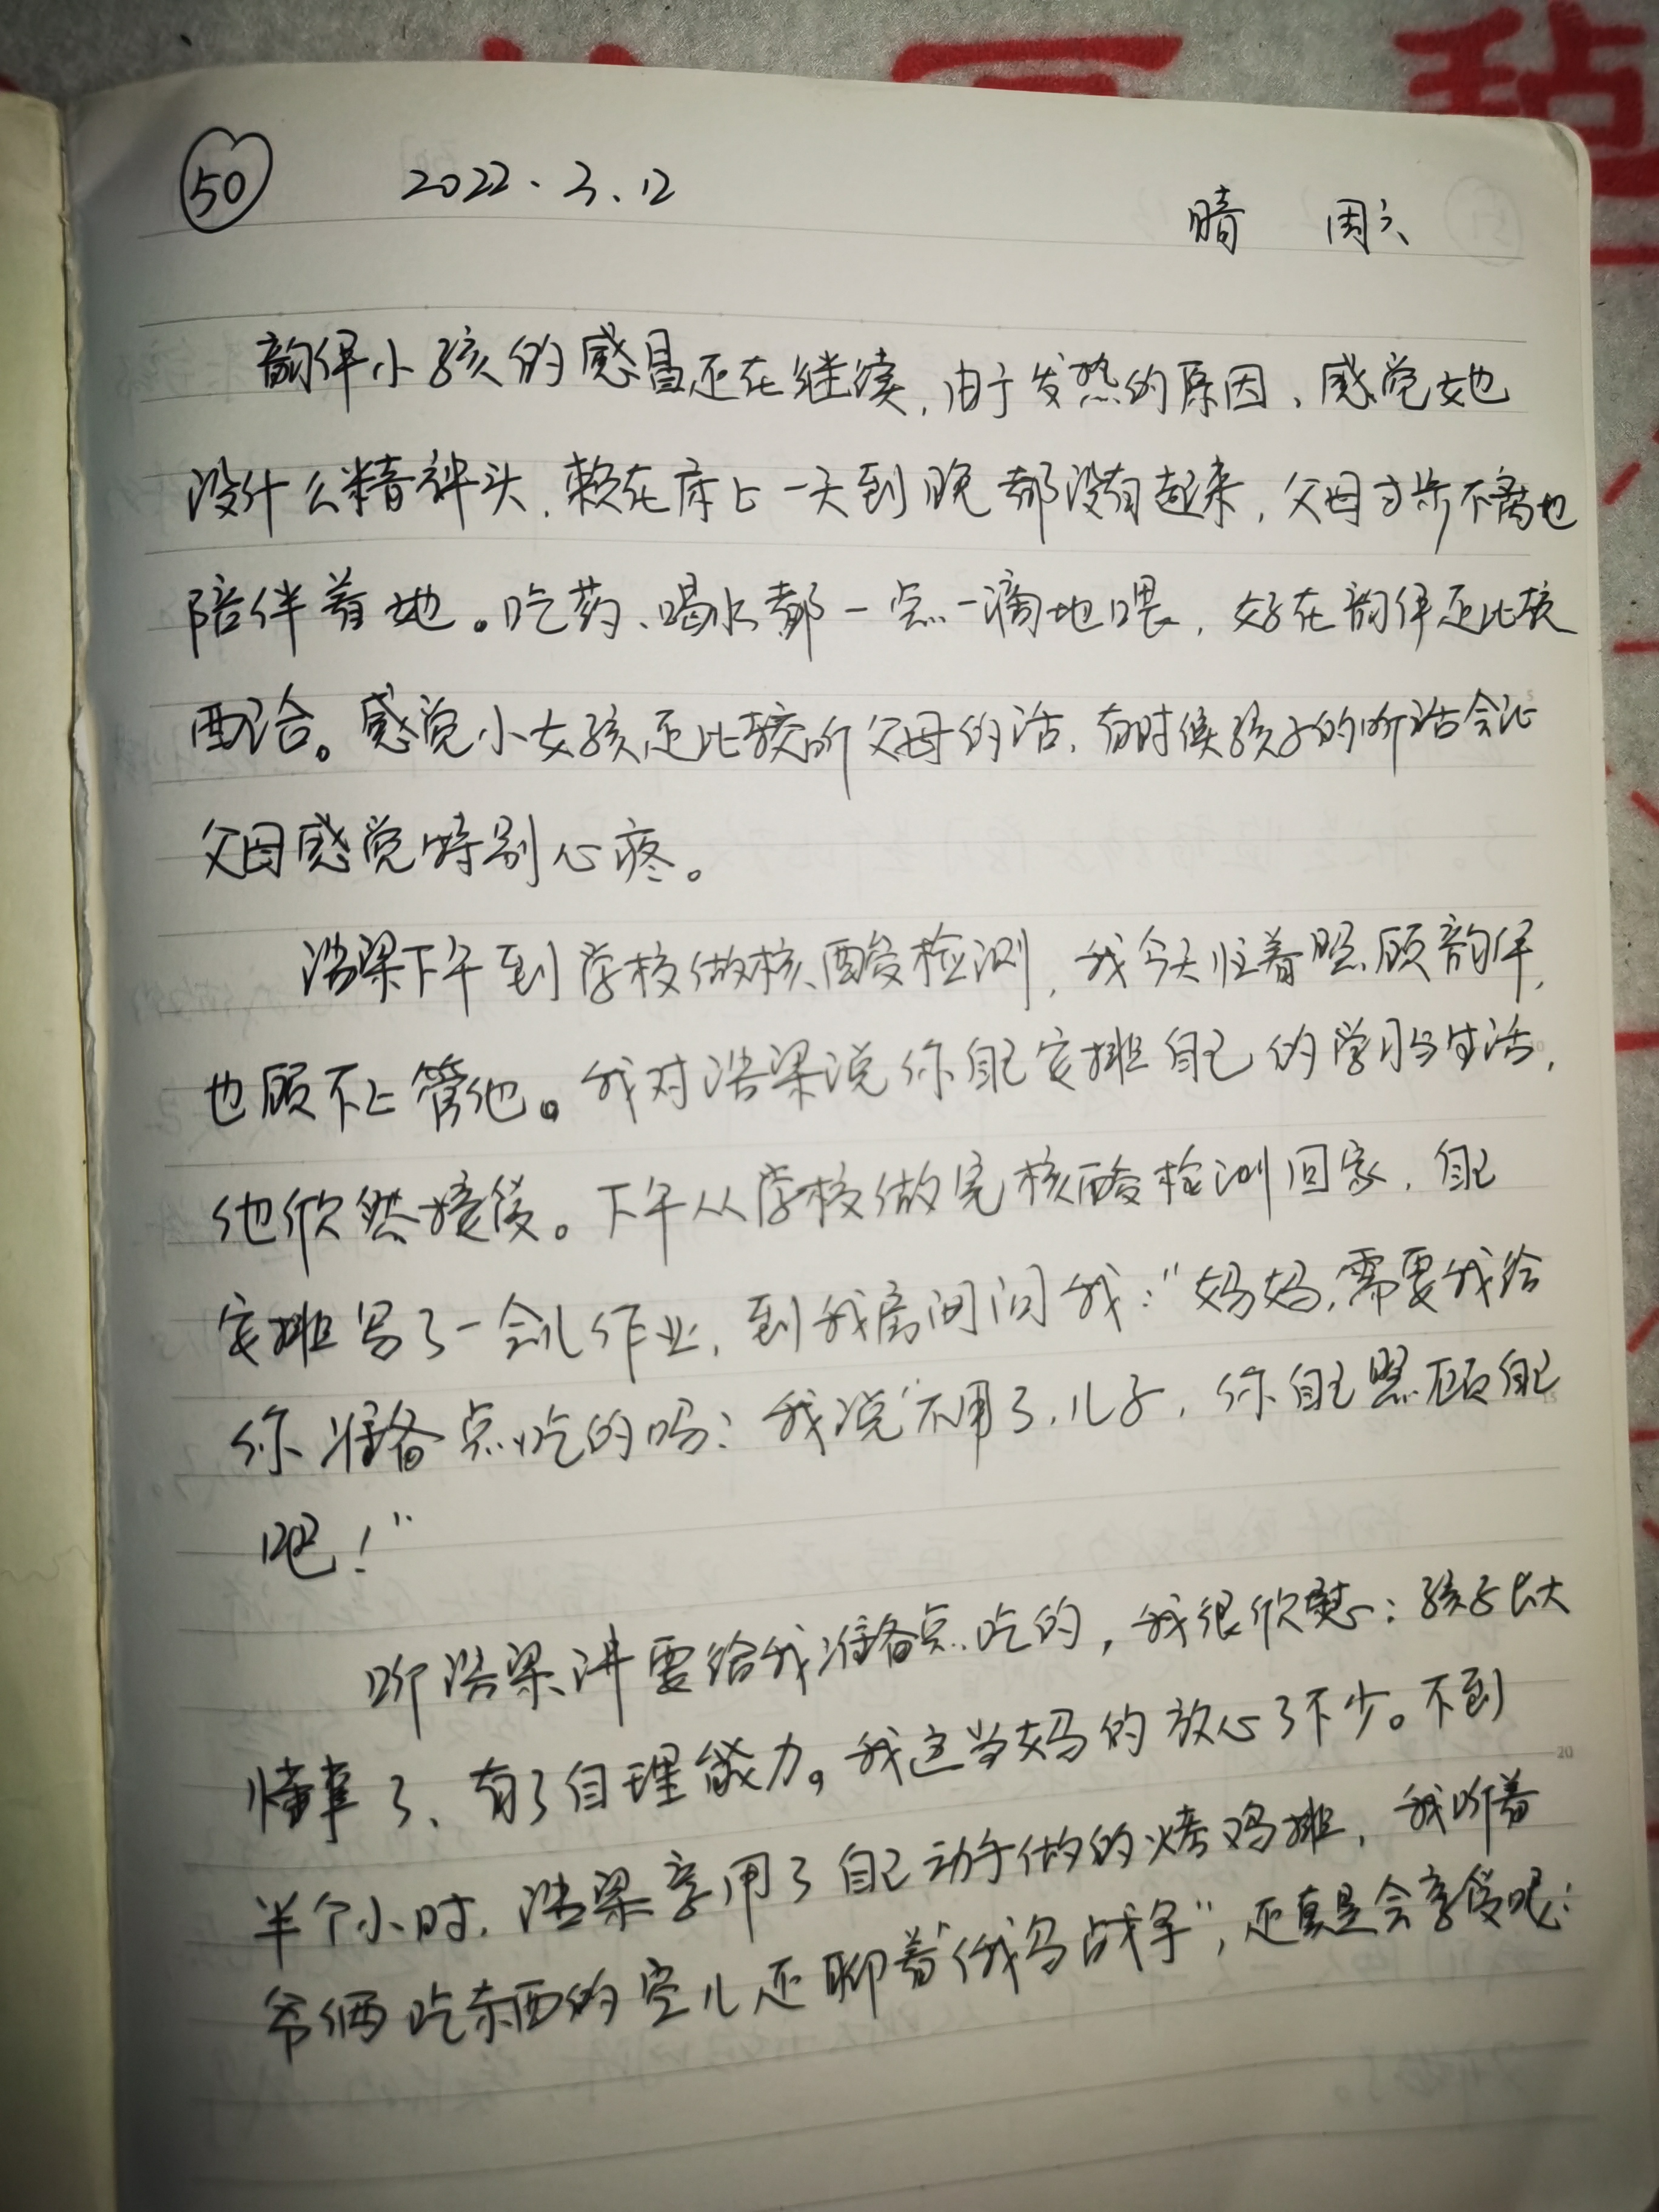 50 2022.3.12
晴 周六
韵伊小孩的感冒还在继续,由于发热的原因、感觉她
没什么精神头,赖在床上一天到晚都没有起来,父母寸步不离地
陪伴着她。吃药、喝水都一点一滴地喂,好在韵伊还比较
配合。感觉小女孩还比较听父母的话,有时候孩子的听话会让
父母感觉特别心疼。
浩梁下午到学校做核酸检测,我今天忙着照顾韵伊,
也顾不上管他。我对浩梁说你自己安排自己的学习与生活,
他欣然接受。下午从学校做完核酸检测回家,自己
安排写了一会儿作业,到我房间问我:“妈妈,需要我给
你准备点吃的吗?我说“不用了,儿子,你自己照顾自己
吧!”
听浩梁讲要给我准备点吃的,我很欣慰:孩子长大
懂事了、有了自理能力。我这当妈的放心了不少。不到
半个小时,浩梁享用了自己动手做的烤鸡排,我听着
爷俩吃东西的空儿还聊着“俄乌战争”,还真是会享受呢!